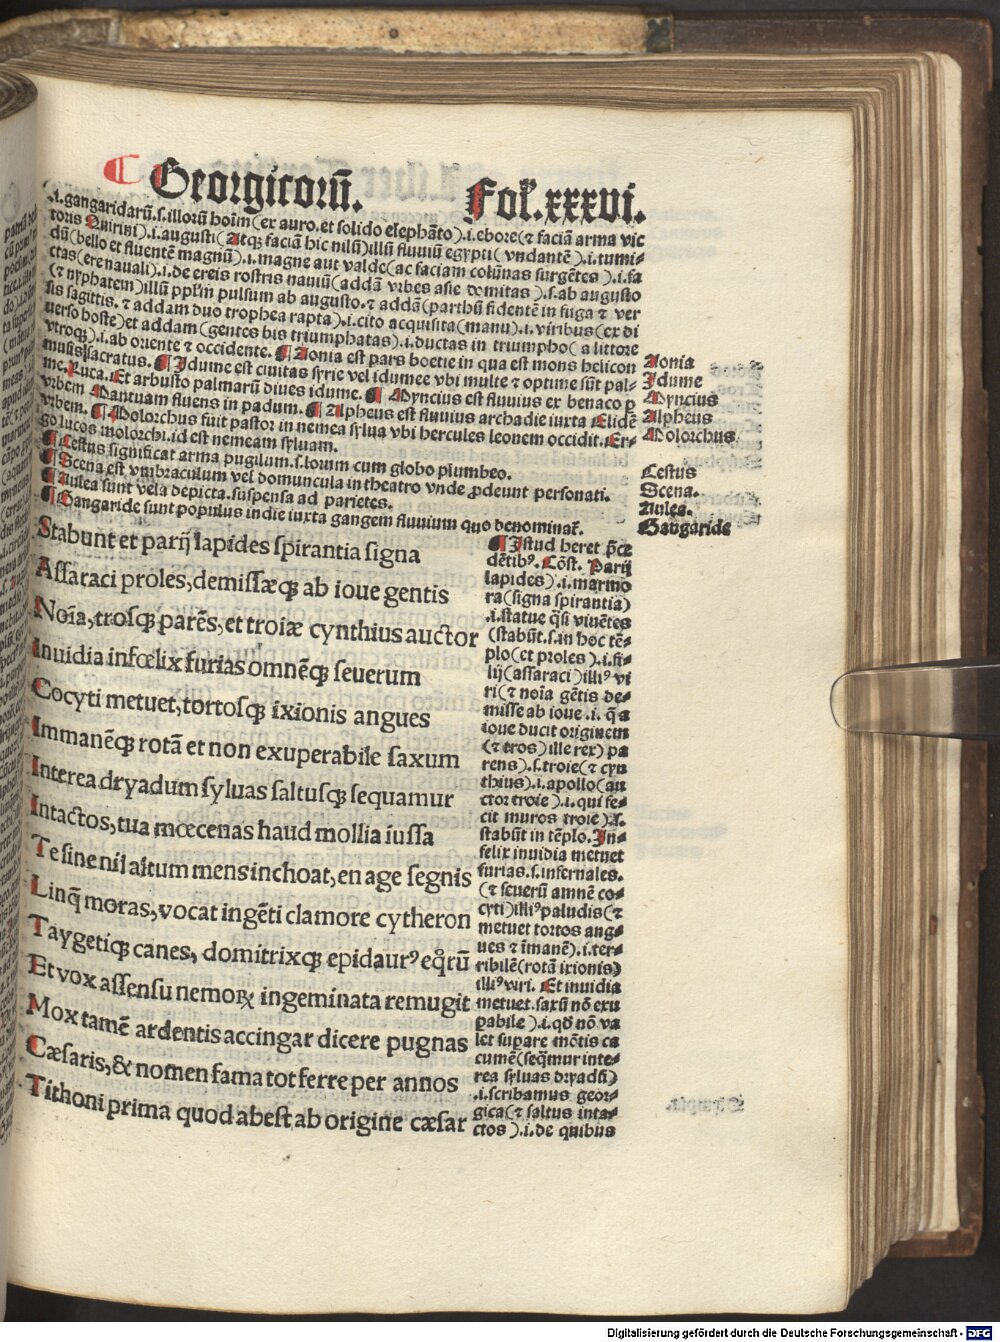 Georgicorū. Fol.xxxvi.
.i.gangaridarū.s.illorū hoīm(ex auro.et solido elephāto).i.ebore(⁊ faciā arma vic
toris Quirini).i.augusti(Atqꝫ faciā hic nilū)illū fluuiū egypti(vndantē).i.tumi-
dū(bello et fluentē magnū).i.magne aut valde(ac faciam colūnas surgētes).i.fa
ctas(ere nauali).i.de ereis rostris nauiū(addā vrbes asie domitas).s.ab augusto
(⁊ nyphatem)illū pplm̄ pulsum ab augusto.⁊ addā(parthū fidentē in fuga ⁊ ver
sis sagittis.⁊ addam duo trophea rapta).i.cito acquisita(manu).i.viribus(ex di
uerso hoste)et addam(gentes bis triumphatas).i.ductas in triumpho(a littore
vtroqꝫ).i.ab oriente ⁊ occidente. ¶ Aonia est pars boetie in qua est mons helicon
musis sacratus. ¶ Idume est ciuitas syrie vel idumee vbi multe ⁊ optime sūt pal-
me. Luca. Et arbusto palmarū diues idume. ¶ Myncius est fluuius ex benaco ꝑ
vrbem Mantuam fluens in padum. ¶ Alpheus est fluuius archadie iuxta Elidē
vrbem. ¶ Molorchus fuit pastor in nemea sylua vbi hercules leonem occidit. Er-
go lucos molorchi.id est nemeam syluam.
¶ Cestus significat arma pugilum.s.lorum cum globo plumbeo.
¶ Scena est vmbraculum vel domuncula in theatro vnde ꝓdeunt personati.
¶ Aulea sunt vela depicta.suspensa ad parietes.
¶ Gangaride sunt populus indie iuxta gangem fluuium quo denominat̄.
Aonia
Idume
Myncius
Alpheus
Molorchus
Cestus
Scena.
Aulea.
Gangaride
Stabunt et parij lapides spirantia signa
Assaraci proles, demissæqꝫ ab ioue gentis
Noīa, trosqꝫ parēs, et troiæ cynthius auctor
Inuidia infœlix furias omnēqꝫ seuerum
Cocyti metuet, tortosqꝫ ixionis angues
Immanēqꝫ rotā et non exuperabile saxum
Interea dryadum syluas saltusqꝫ sequamur
Intactos, tua mœcenas haud mollia iussa
Te sine nil altum mens inchoat, en age segnis
Linq̄ moras, vocat ingēti clamore cytheron
Taygetiqꝫ canes, domitrixqꝫ epidaurꝰ eq̊rū
Et vox assensu nemoꝝ ingeminata remugit
Mox tamē ardentis accingar dicere pugnas
Cæsaris, & nomen fama tot ferre per annos
Tithoni prima quod abest ab origine cæsar
¶ Istud heret p̄ce
dētibꝰ. Cōst. Parij
lapides).i.marmo
ra(signa spirantia)
.i.statue q̄si viuētes
(stabūt.s.in hoc tē-
plo(et proles).i.fi-
lij(assaraci)illiꝰ vi
ri(⁊ noīa gētis de-
misse ab ioue.i. q̄ a
ioue ducit originem
(⁊ tros)ille rex) pa
rens).s.troie(⁊ cyn
thius).i.apollo(au
ctor troie).i.qui fe-
cit muros troie).s.
stabūt in tēplo. In-
felix inuidia metuet
furias.s.infernales.
(⁊ seuerū amnē co-
cyti)illiꝰ paludis(⁊
metuet tortos ang-
ues ⁊ īmanē).i.ter-
ribilē(rotā ixionis)
illiꝰ viri. Et inuidia
metuet.saxū nō exu
pabile).i.qd̄ nō va
let supare mōtis ca
cumē(seq̄mur inte-
rea syluas dryadū)
.i.scribamus geor-
gica(⁊ saltus intac-
ctos).i.de quibus
Digitalisierung gefördert durch die Deutsche Forschungsgemeinschaft - DFG